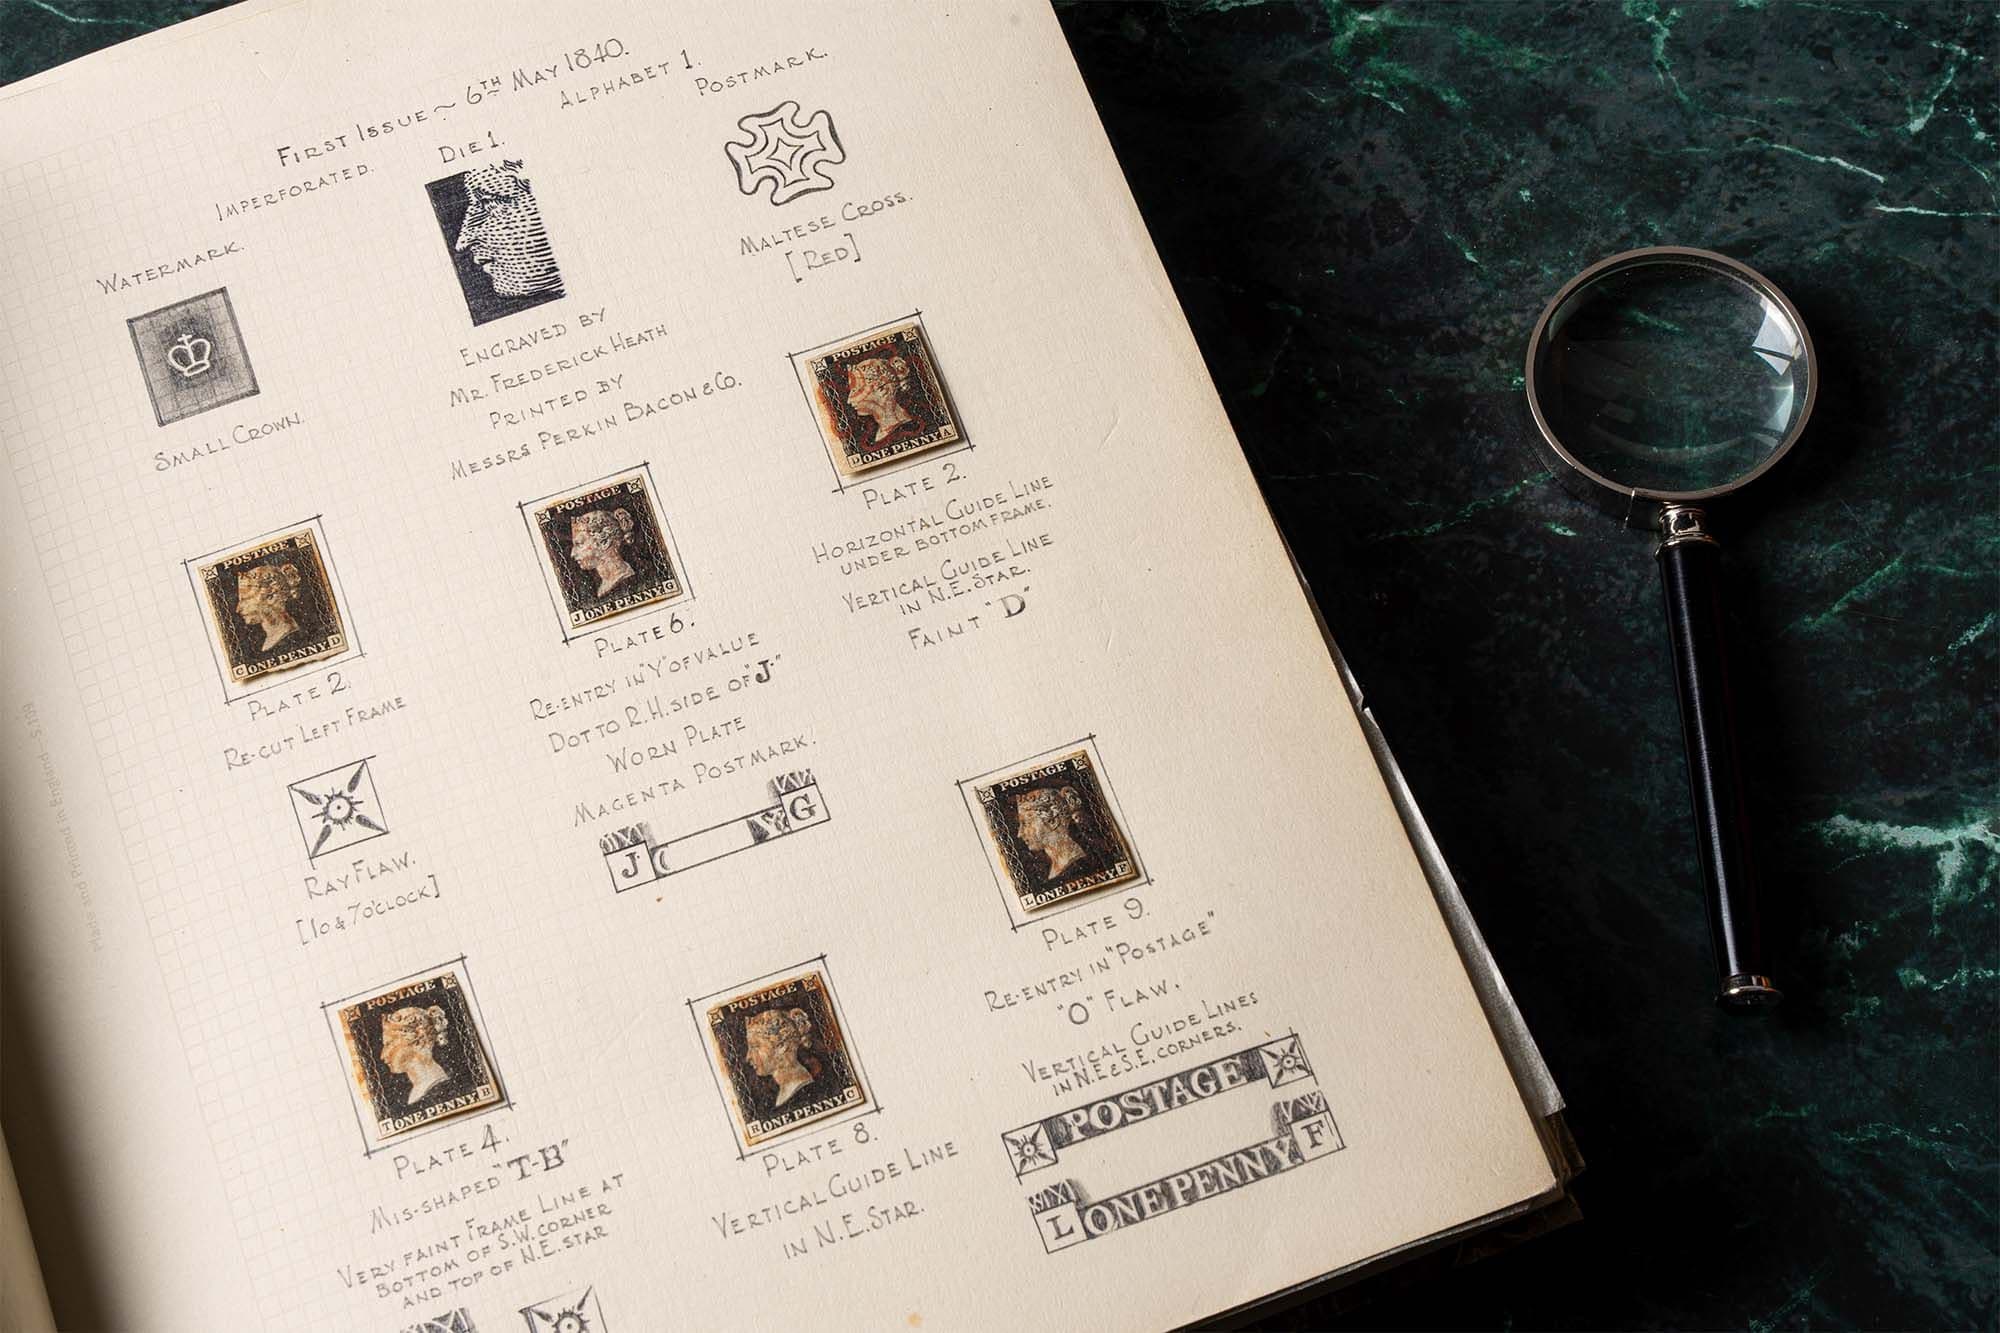 First Issue ~ 6TH May 1840.
Imperforated.
Die 1.
Alphabet 1.
Postmark.
Watermark.
Small Crown.
Engraved by
Mr. Frederick Heath
Printed by
Messrs Perkin Bacon & Co.
Maltese Cross.
[Red]
POSTAGE
D ONE PENNY A
Plate 2.
Horizontal Guide Line
under bottom frame.
Vertical Guide Line
in N.E. Star.
Faint "D"
POSTAGE
C ONE PENNY D
Plate 2.
Re-cut Left Frame
Ray Flaw.
[10 & 7 o'clock]
POSTAGE
J ONE PENNY G
Plate 6.
Re-entry in "Y" of value
Dot to R.H. side of "J·"
Worn Plate
Magenta Postmark.
J Y G
POSTAGE
L ONE PENNY F
Plate 9.
Re-entry in "Postage"
"O" Flaw.
Vertical Guide Lines
in N.E & S.E. corners.
POSTAGE
L ONE PENNY F
POSTAGE
T ONE PENNY B
Plate 4.
Mis-shaped "T-B"
Very faint Frame Line at
bottom of S.W. corner
and top of N.E. star
POSTAGE
R ONE PENNY C
Plate 8.
Vertical Guide Line
in N.E. Star.
Made and Printed in England - S.109